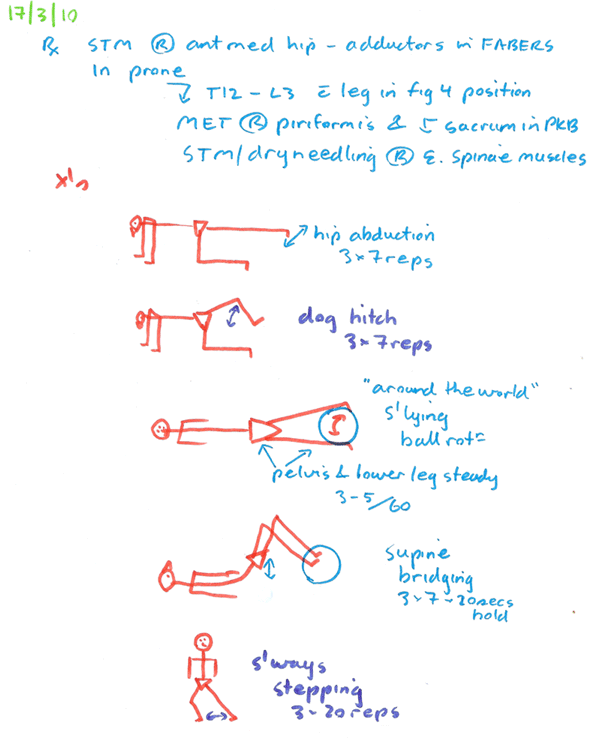 17/3/10
Rx STM Ⓡ ant med hip - adductors in FABERS
In prone
↘ T12 - L3 c̄ leg in fig 4 position
MET Ⓡ piriformis & sacrum in PKB
STM/dry needling Ⓡ E. Spinae muscles
x's
hip abduction
3 × 7 reps
dog hitch
3 × 7 reps
"around the world"
s'lying
ball rotⁿ
pelvis & lower leg steady
3 - 5/60
supine
bridging
3 × 7 - 20secs
hold
s'ways
stepping
3 - 20 reps